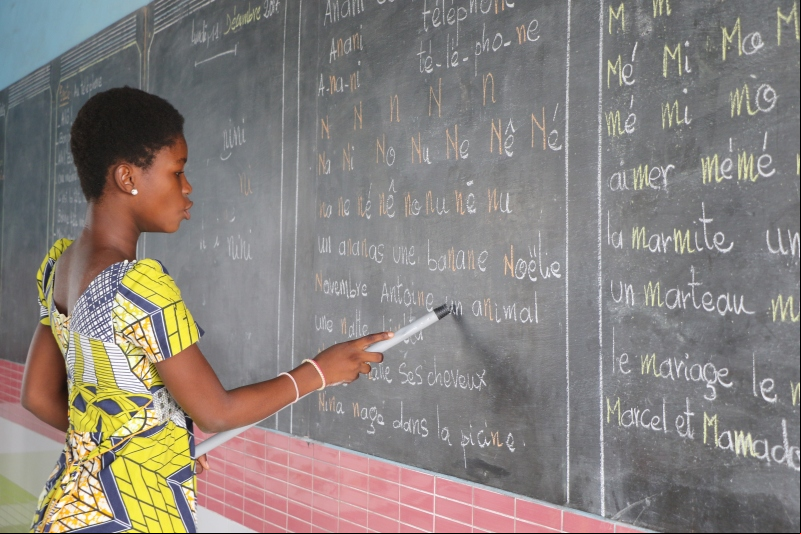 Décembre 2017
nini
nu
ni
nini
Anani
téléphone
Anani
té-lé-pho-ne
A-na-ni
N N n N n
Na Ni No Nu Ne Nê Né
na ne né nê no nu nē nu
un ananas une banane Noëlie
Novembre Antoine un animal
une natte
natte ses cheveux
Nina nage dans la picine.
M m
M M
Mé Mi Mo M
mé mi mo
aimer mémé
la marmite un
un marteau m
le mariage le
Marcel et Mamado